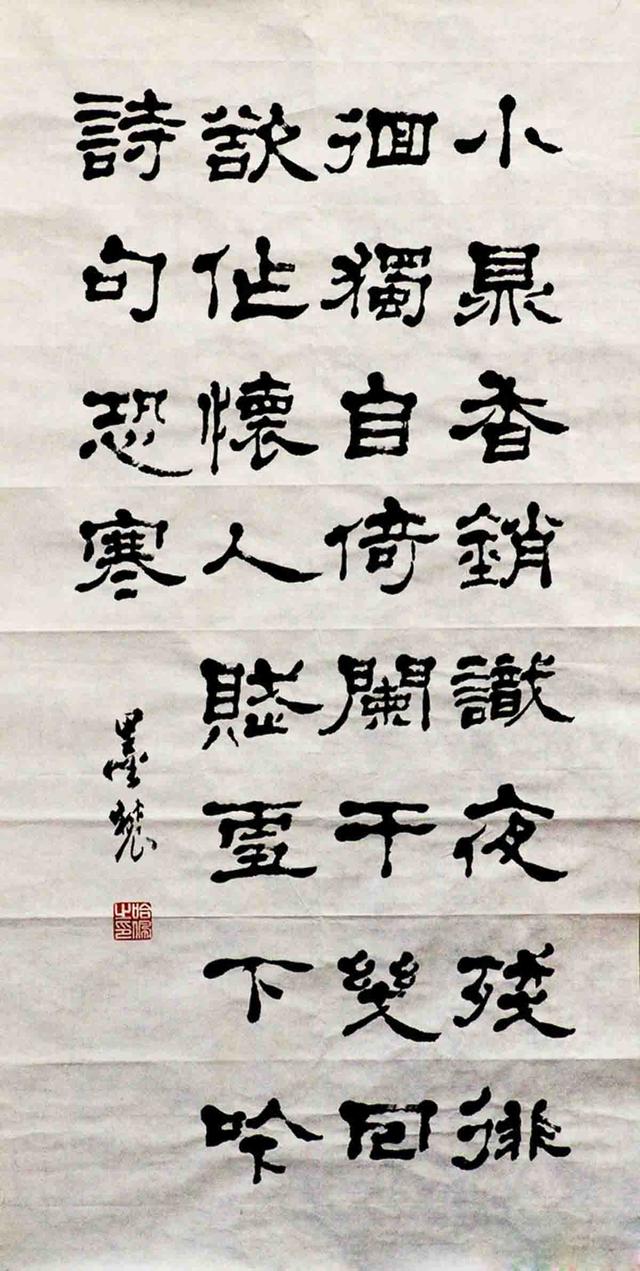 小鼎香銷識夜殘徘
徊獨自倚闌干幾回
欲作懷人賦雪下吟
詩句恐寒
墨